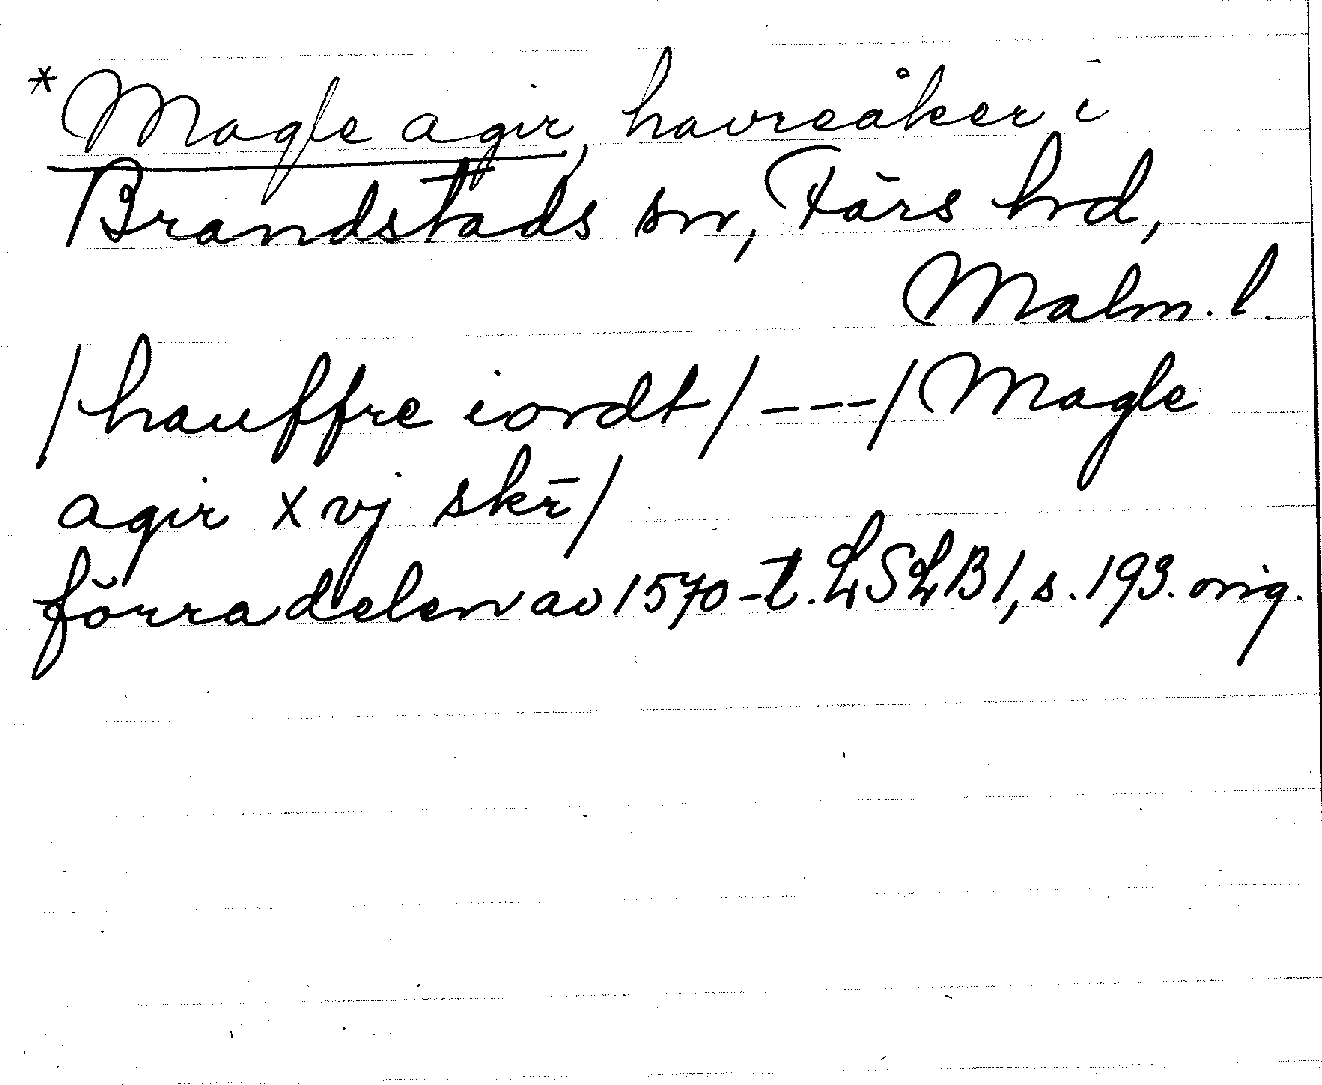 *Magle agir, havreåker i
Brandstads sn, Färs hd,
Malm. l.
/hauffre iordt/ --- /Magle
agir xvj skr̄/
förra delen av 1570-t. LSLB1, s. 193. orig.